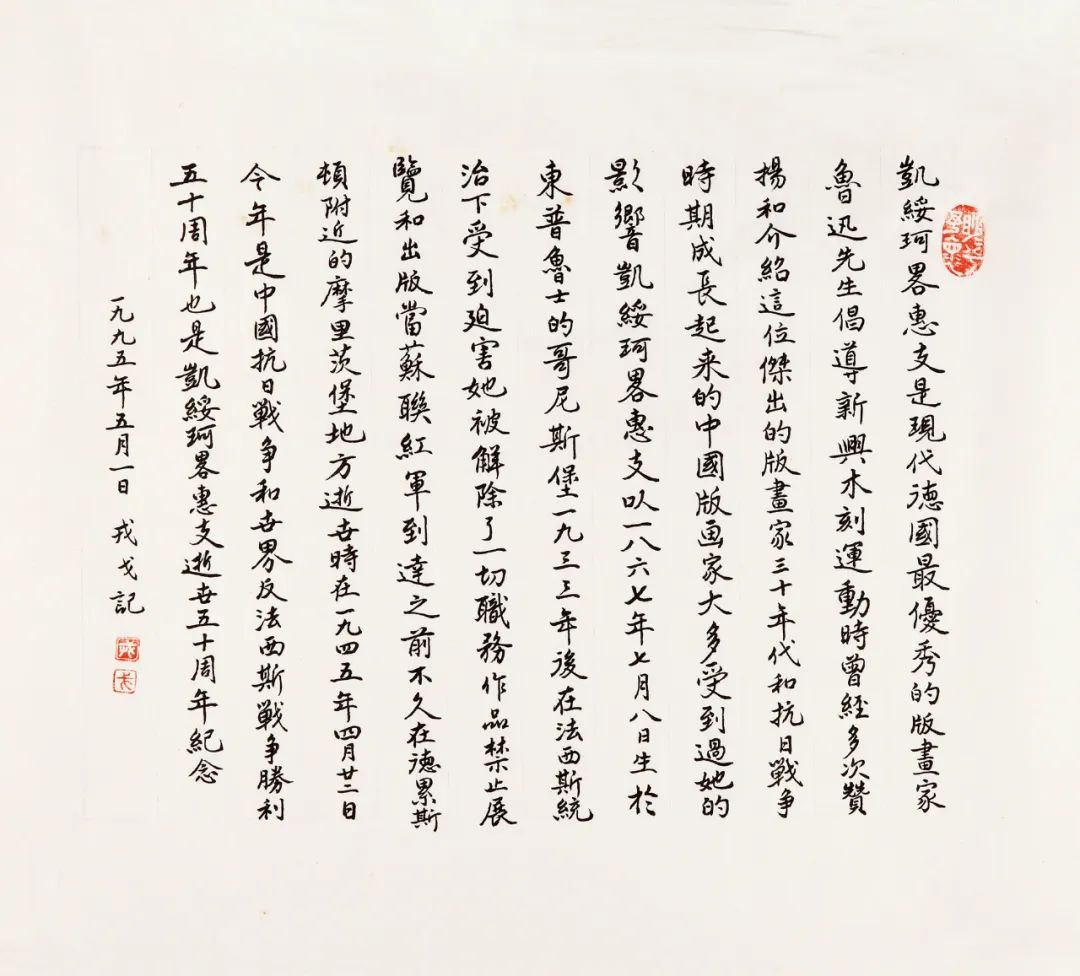 凱綏珂畧惠支是現代德國最優秀的版畫家
魯迅先生倡導新興木刻運動時曾經多次贊
揚和介紹這位傑出的版畫家三十年代和抗日戰争
時期成長起来的中國版画家大多受到過她的
影響凱綏珂畧惠支以一八六七年七月八日生於
東普魯士的哥尼斯堡一九三三年後在法西斯統
治下受到廹害她被解除了一切職務作品禁止展
覽和出版當蘇聯紅軍到達之前不久在德累斯
頓附近的摩里茨堡地方逝世時在一九四五年四月廿二日
今年是中國抗日戰争和世界反法西斯戰争勝利
五十周年也是凱綏珂畧惠支逝世五十周年紀念
一九九五年五月一日 戎戈記
戎
戈